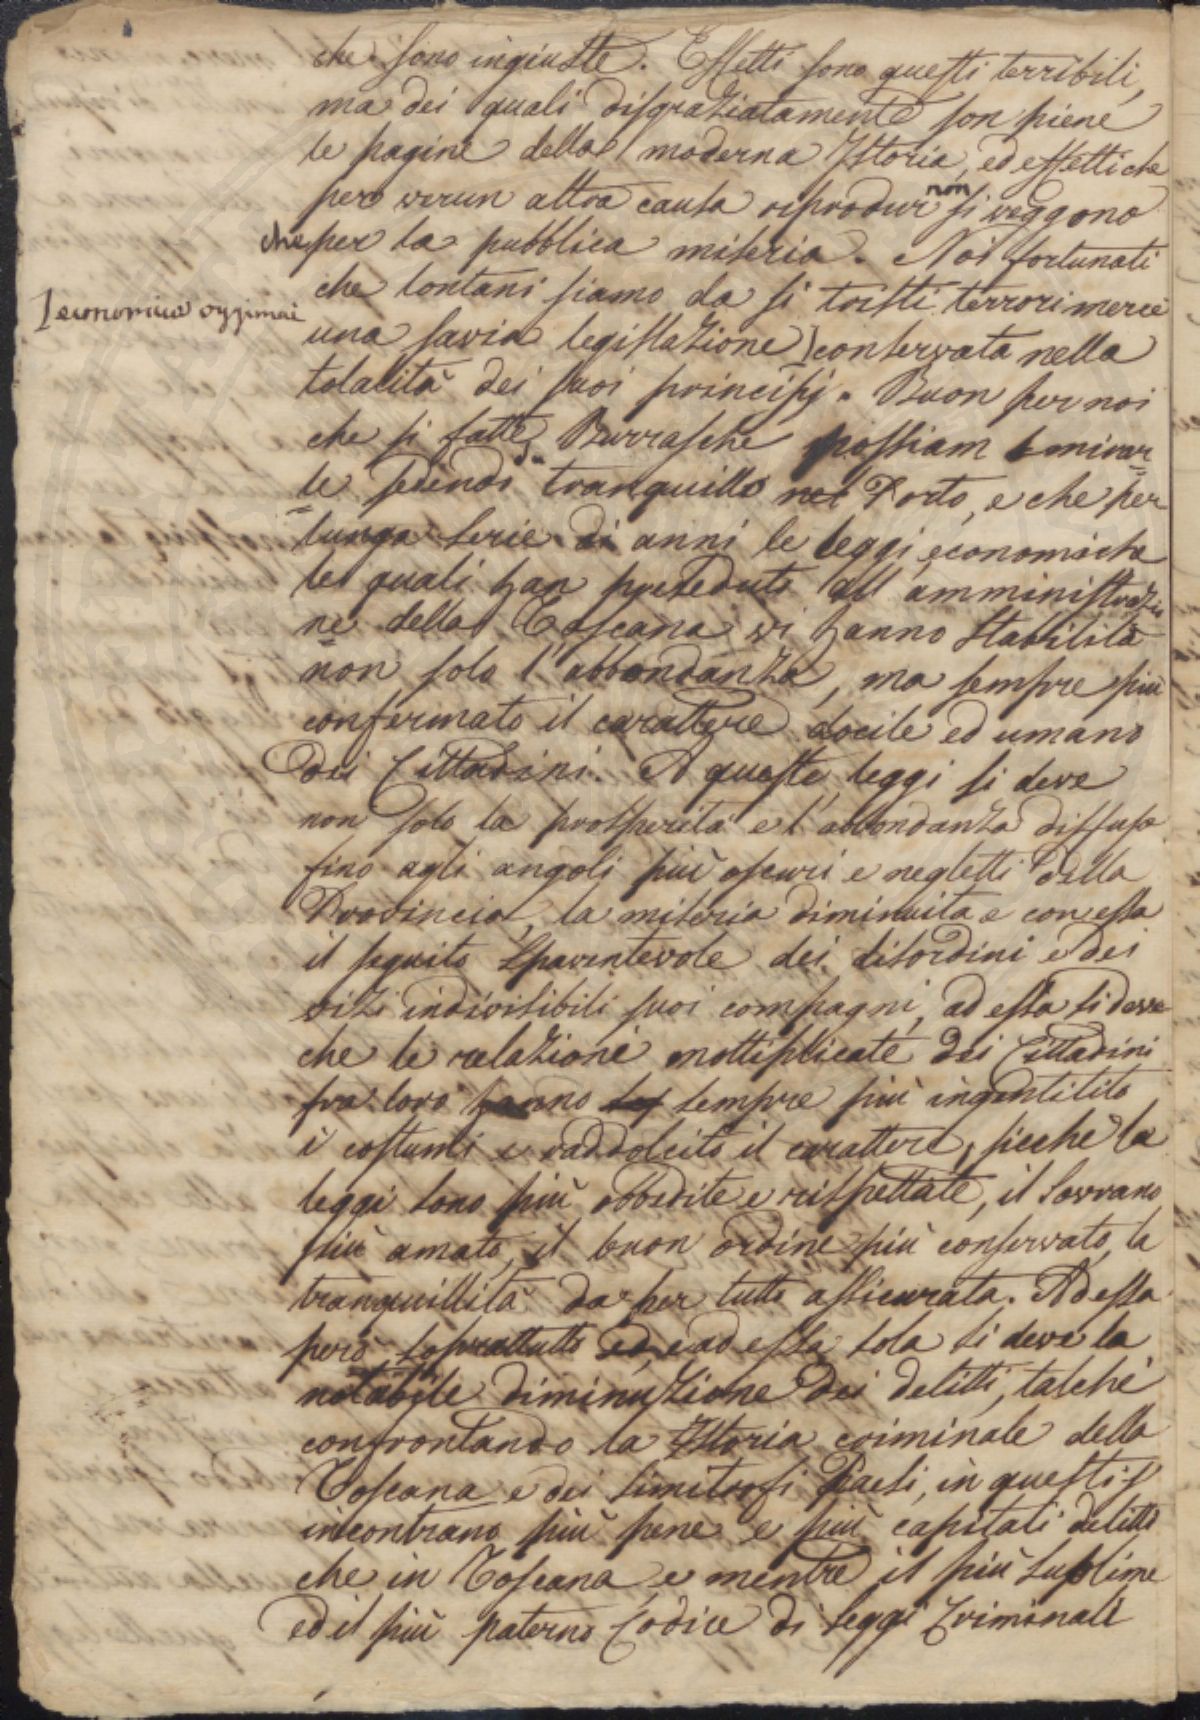 che sono ingiuste. Effetti sono questi terribili,
ma dei quali disgraziatamente son piene
le pagine della moderna Istoria, ed effetti che
per verun altra causa riprodur non si veggono
che per la pubblica miseria. Noi fortunati
che lontani siamo da si tristi terrori mercè
economica oggimai
una savia legislazione) conservata nella
totalità dei suoi principj. Buon per noi
che si fatte Burrasche possiam mirar
le sedendo tranquilli Porto, e che per
lunga serie di anni le leggi economiche
le quali han preseduto all amministrazio
ne della Toscana vi hanno stabilita
non solo l'abbondanza, ma sempre più
confermato il carattere docile ed umano
dei Cittadini. A queste leggi si deve
non solo la prosperità e l'abbondanza diffusa
fino agli angoli più oscuri e negletti della
Provincia, la miseria diminuita e con essa
il seguito spaventevole dei disordini e dei
vizi indivisibili suoi compagni, ad essa si deve
che le relazioni moltiplicate dei Cittadini
fra loro hanno sempre più ingentilito
i costumi e raddolcito il carattere, sicche le
leggi sono più obbedite e rispettate, il Sovrano
più amato, il buon ordine più conservato, la
tranquillità da per tutto assicurata. Ad essa
però soprattutto e ad essa sola si deve la
notabile diminuzione dei delitti, talchè
confrontando la Istoria criminale della
Toscana e dei limitrofi Paesi, in questi s
incontrano più pene e più capitali delitti
che in Toscana e mentre il più sublime
ed il più paterno Codice di Leggi Criminali